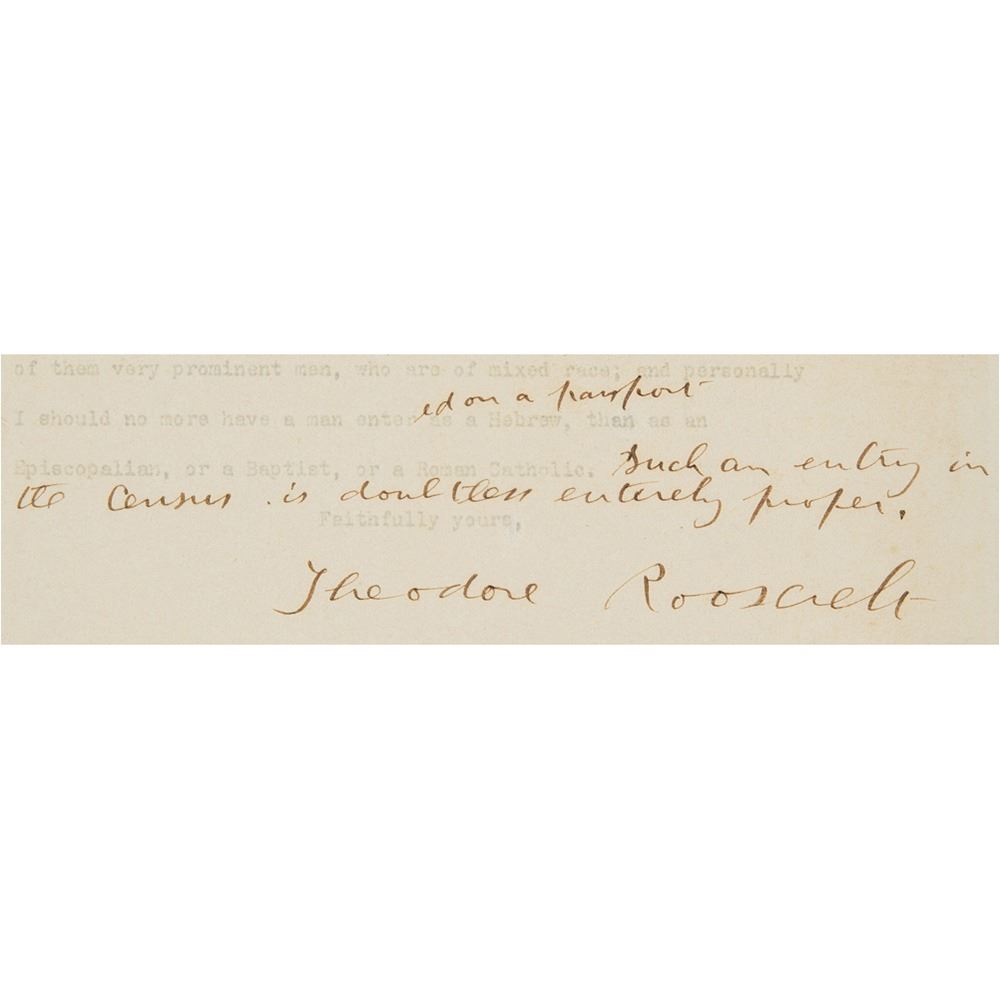 of them very prominent men, who are of mixed race; and personally
ed on a passport
I should no more have a man enter as a Hebrew, than as an
Episcopalian, or a Baptist, or a Roman Catholic. Such an entry in
the census is doubtless entirely proper.
Faithfully yours,
Theodore Roosevelt